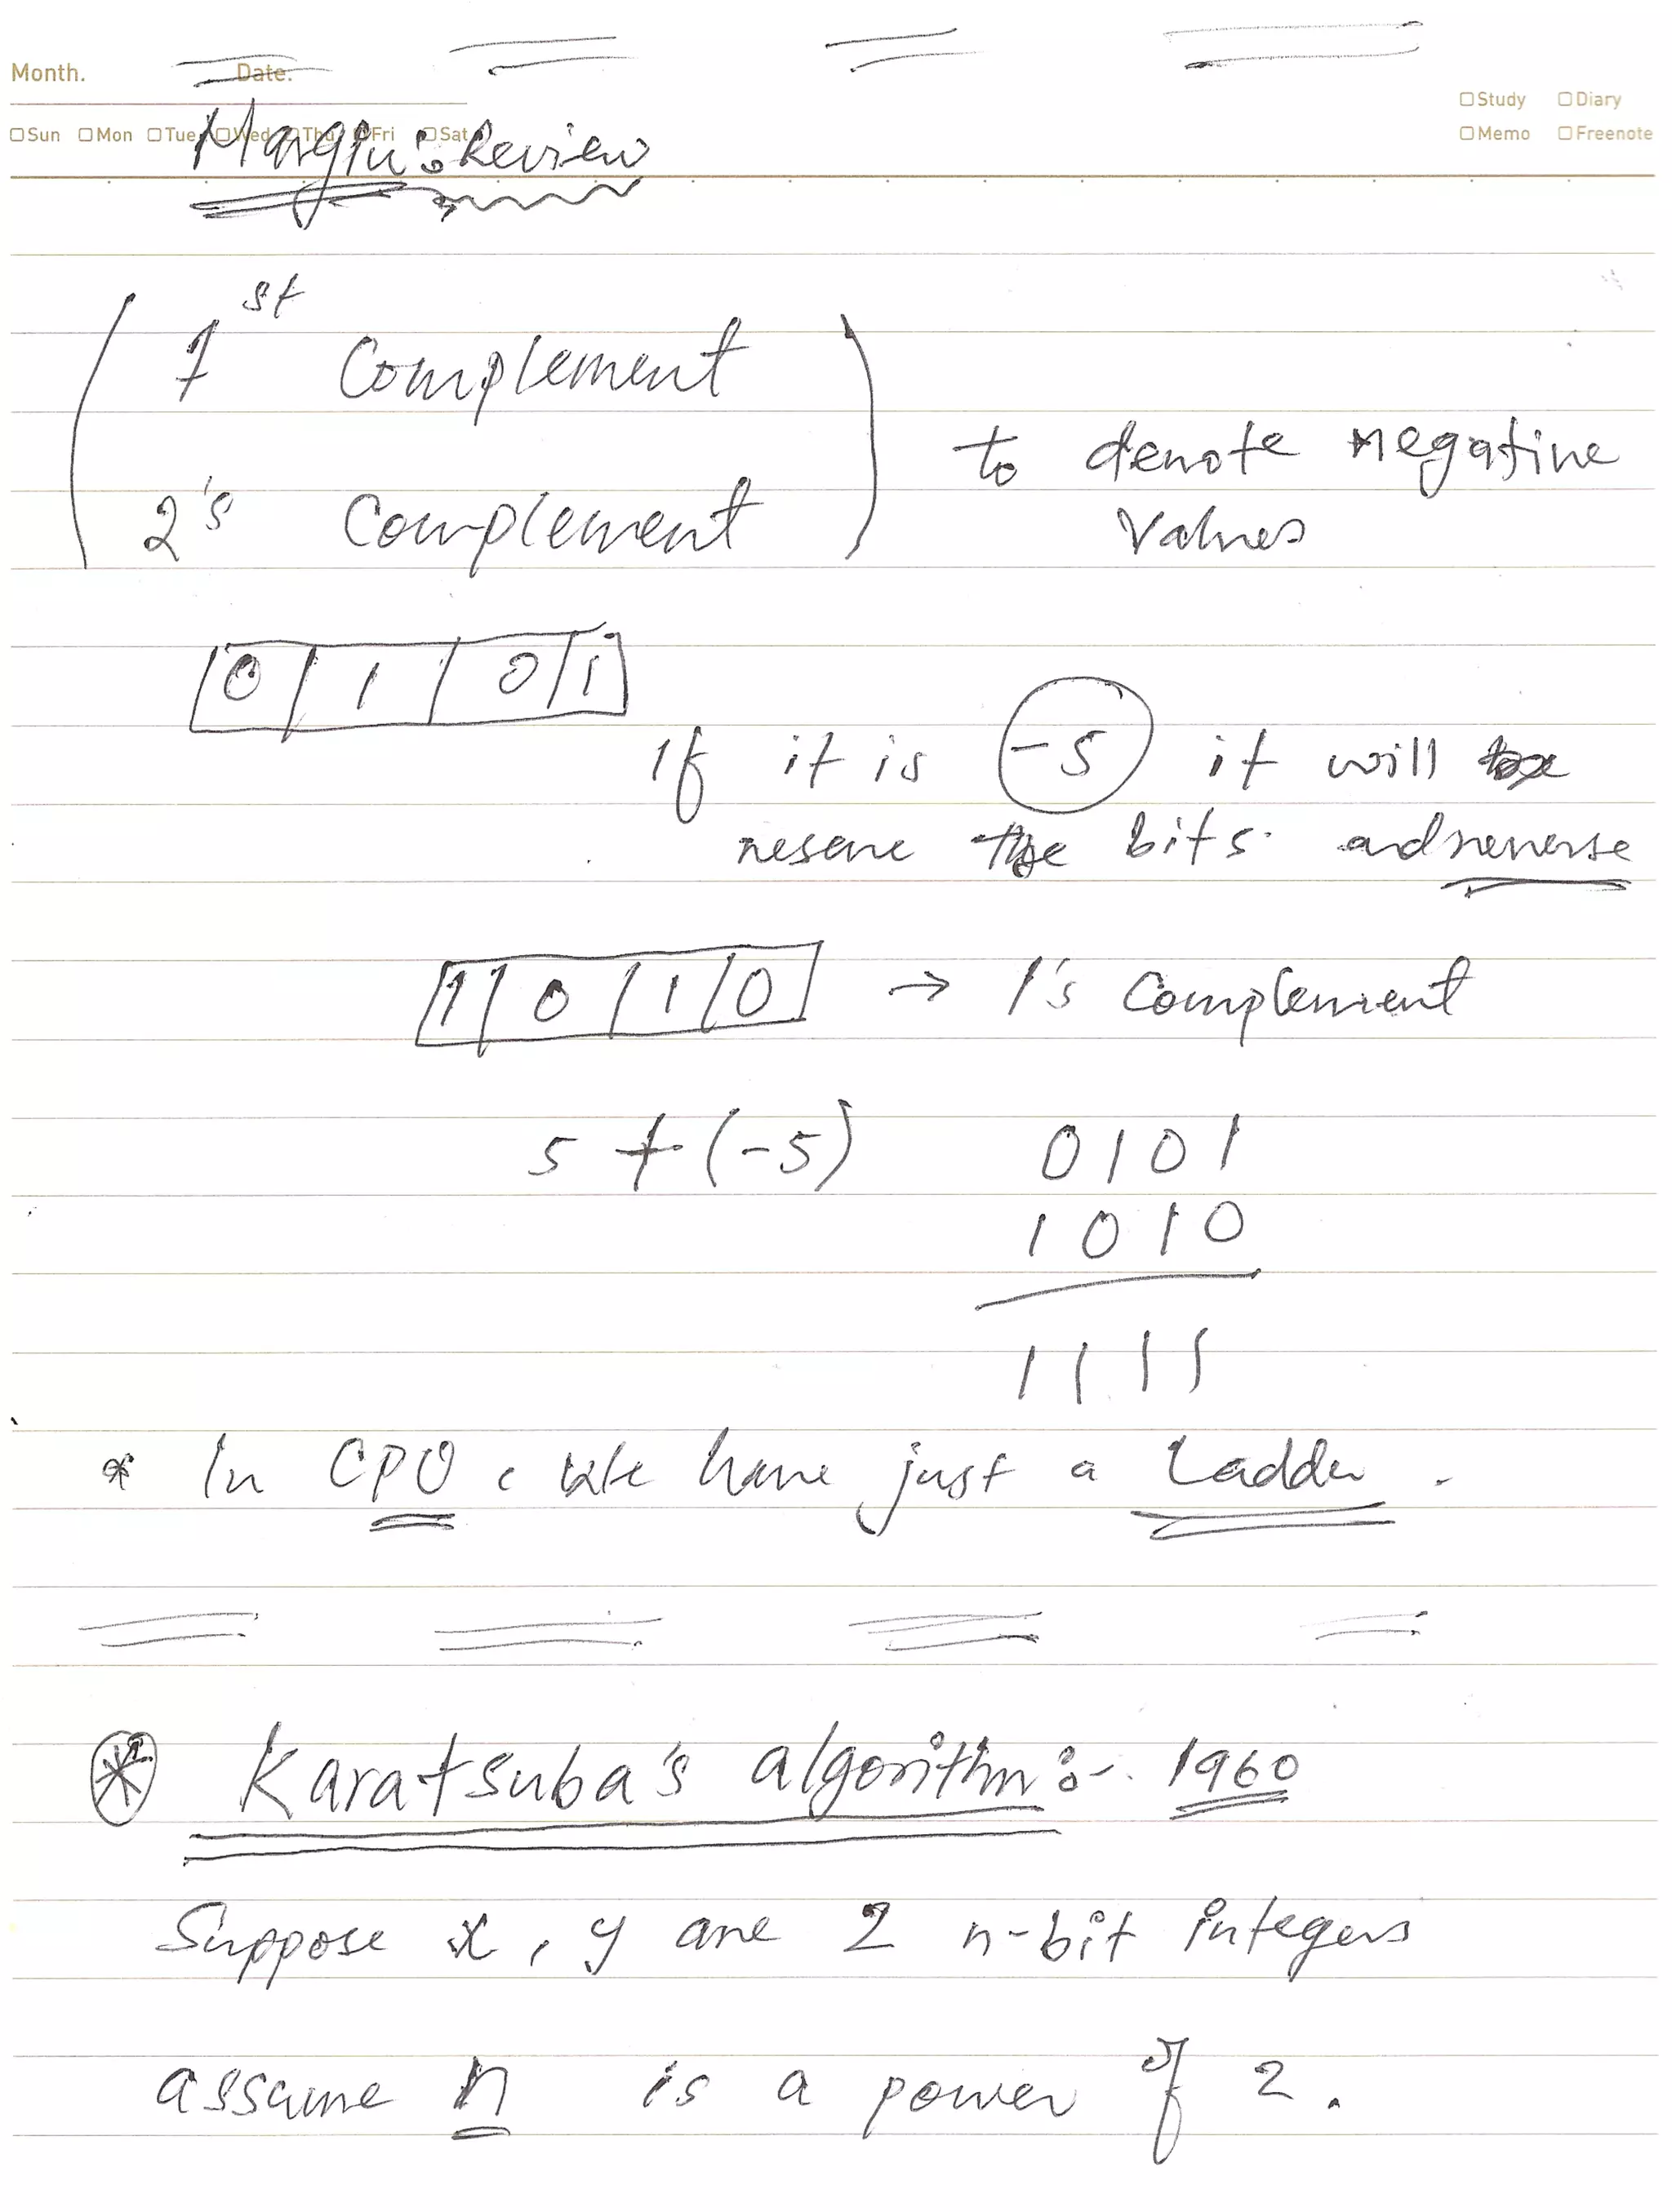 Month. Date.
□Sun □Mon □Tue □Wed □Thu □Fri □Sat
□Study □Diary
□Memo □Freenote
Margin: Review
1st Complement
2's Complement
to denote negative
values
0 1 0 1
If it is -5 it will
the bits. and reverse
1 0 1 0 → 1's Complement
5 + (-5) 0101
1010
1111
* In CPU, We have just a Ladder.
* Karatsuba's algorithm:-. 1960
Suppose x, y are 2 n-bit integers
assume n is a power of 2.